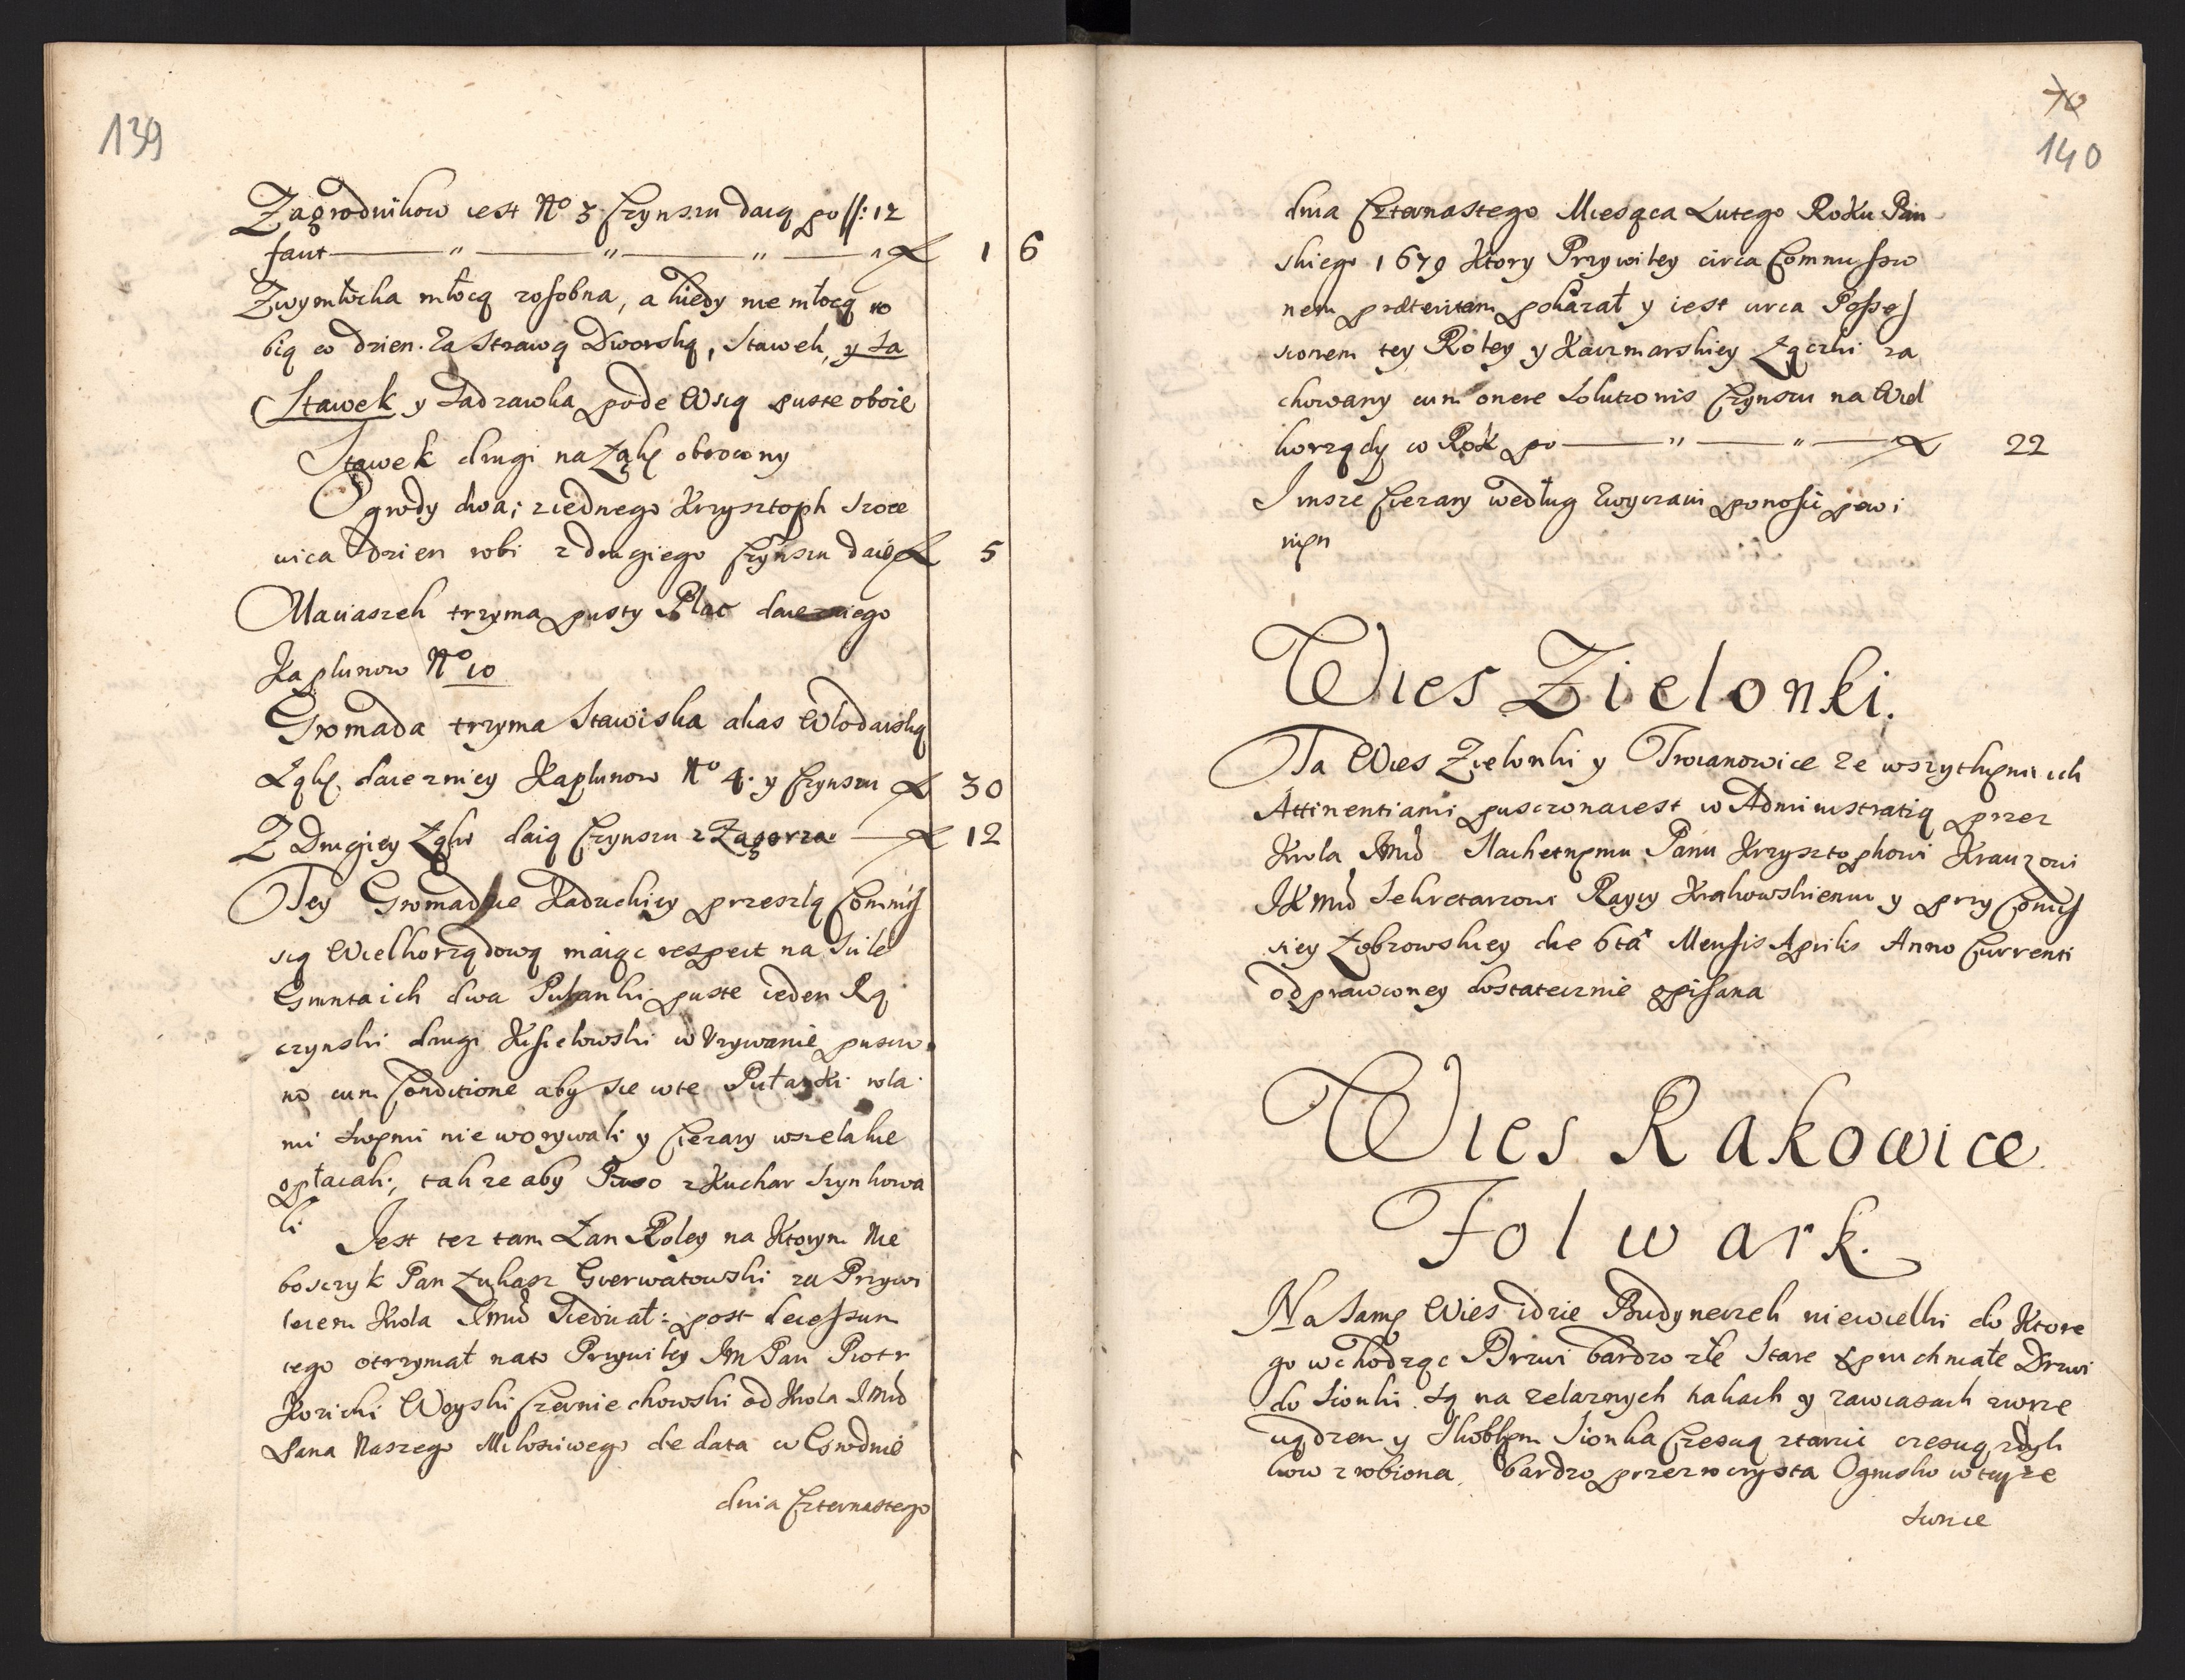 139
Zagrodnikow iest No 3 Czynszu daią po ff: 12
faut — " — " — " — " f 1 6
Zwymłocka młocą zosobna, a kiedy nie młocą ro
bią co dzien. Za Strawą Dworską, Stawek, y Sa
Stawek y Sadzawka pode Wsią puste oboie
Stawek drugi na Łąkę obrocony
Ogrody dwa; z iednego Krzysztoph Szoce
wica dzien robi z drugiego Czynszu daie f 5
Maciaszek trzyma pusty Plac daie z niego
Kaplunow No 10
Gromada trzyma Stawiska alias Włodarską
Łąkę, daie z niey Kaplunow No 4. y Czynszu f 30
Z Drugiey Łąki daią Czynszu z Zagorza — f 12
Tey Gromadzie Kaduckiey przeszłą Commis
sią Wielkorządową maiąc respect na Siłe
Gruntu ich dwa Pułanki puste ieden Rą
czynski drugi Kisielowski w Uzywanie puszczo
no cum Conditione aby sie w te Pułanki rola
mi swemi nie worywali y Ciezary wszelakie
opłacali, takze aby Piwo z Kuchar Szynkowa
li Jest tez tam Łan Roley na Ktorym Nie
boszczyk Pan Łukasz Gierwatowski za Przywi
leiem Krola JMci Siedział: post decessum
tego otrzymał na to Przywiley JMPan Piotr
Koricki Woyski Czerniechowski od Krola JMci
Pana Naszego Miłosciwego de data w Grodnie
dnia Czternastego
70
140
dnia Czternastego Miesąca Lutego Roku Pan
skiego 1679 Ktory Przywiley circa Commissio
nem præteritam pokazał y iest circa Posses
sionem tey Roley y Karczmarskiey Łączki za
chowany cum onere Solutionis Czynszu na Wiel
korządy w Rok po — " — " — f 22
Insze Ciezary według Zwyczaiu ponosic powi
nien
Wies Zielonki.
Ta Wies Zielonki y Troianowice ze wszytkiemi ich
Attinentiami puszczona iest w Administratią przez
Krola JMci Slachetnemu Panu Krzysztophowi Krauzowi
JKMci Sekretarzowi Raycy Krakowskiemu y przy Comis
siey Łobzowskiey die 6ta Mensis Aprilis Anno Currenti
odprawioney dostatecznie opisana
Wies Rakowice
Folwark.
Na Samę Wies idzie Budyneczek niewielki do Ktore
go wchodząc Drzwi bardzo złe Stare spruchniałe Drzwi
do Sionki są na zelaznych hakach y zawiasach z wrze
ciądzem y Skoblem Sionka Czescią z tarcic czescią z dyl
low zrobiona, bardzo przezroczysta Ognisko w teyze
Sionce